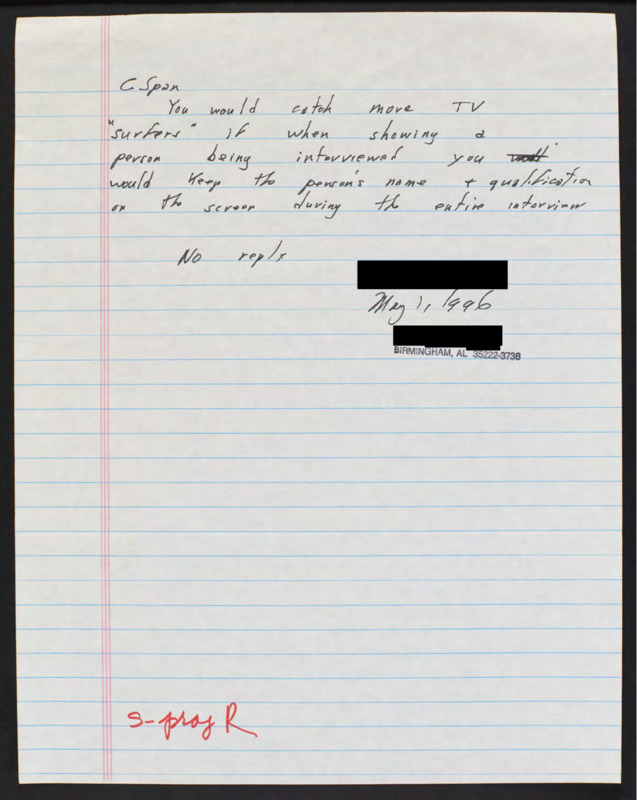 C Span
You would catch more TV
"surfers" if when showing a
person being interviewed you
would keep the person's name + qualification
on the screen during the entire interview
No reply
May 1, 1996
BIRMINGHAM, AL 35222-3738
s-prog R